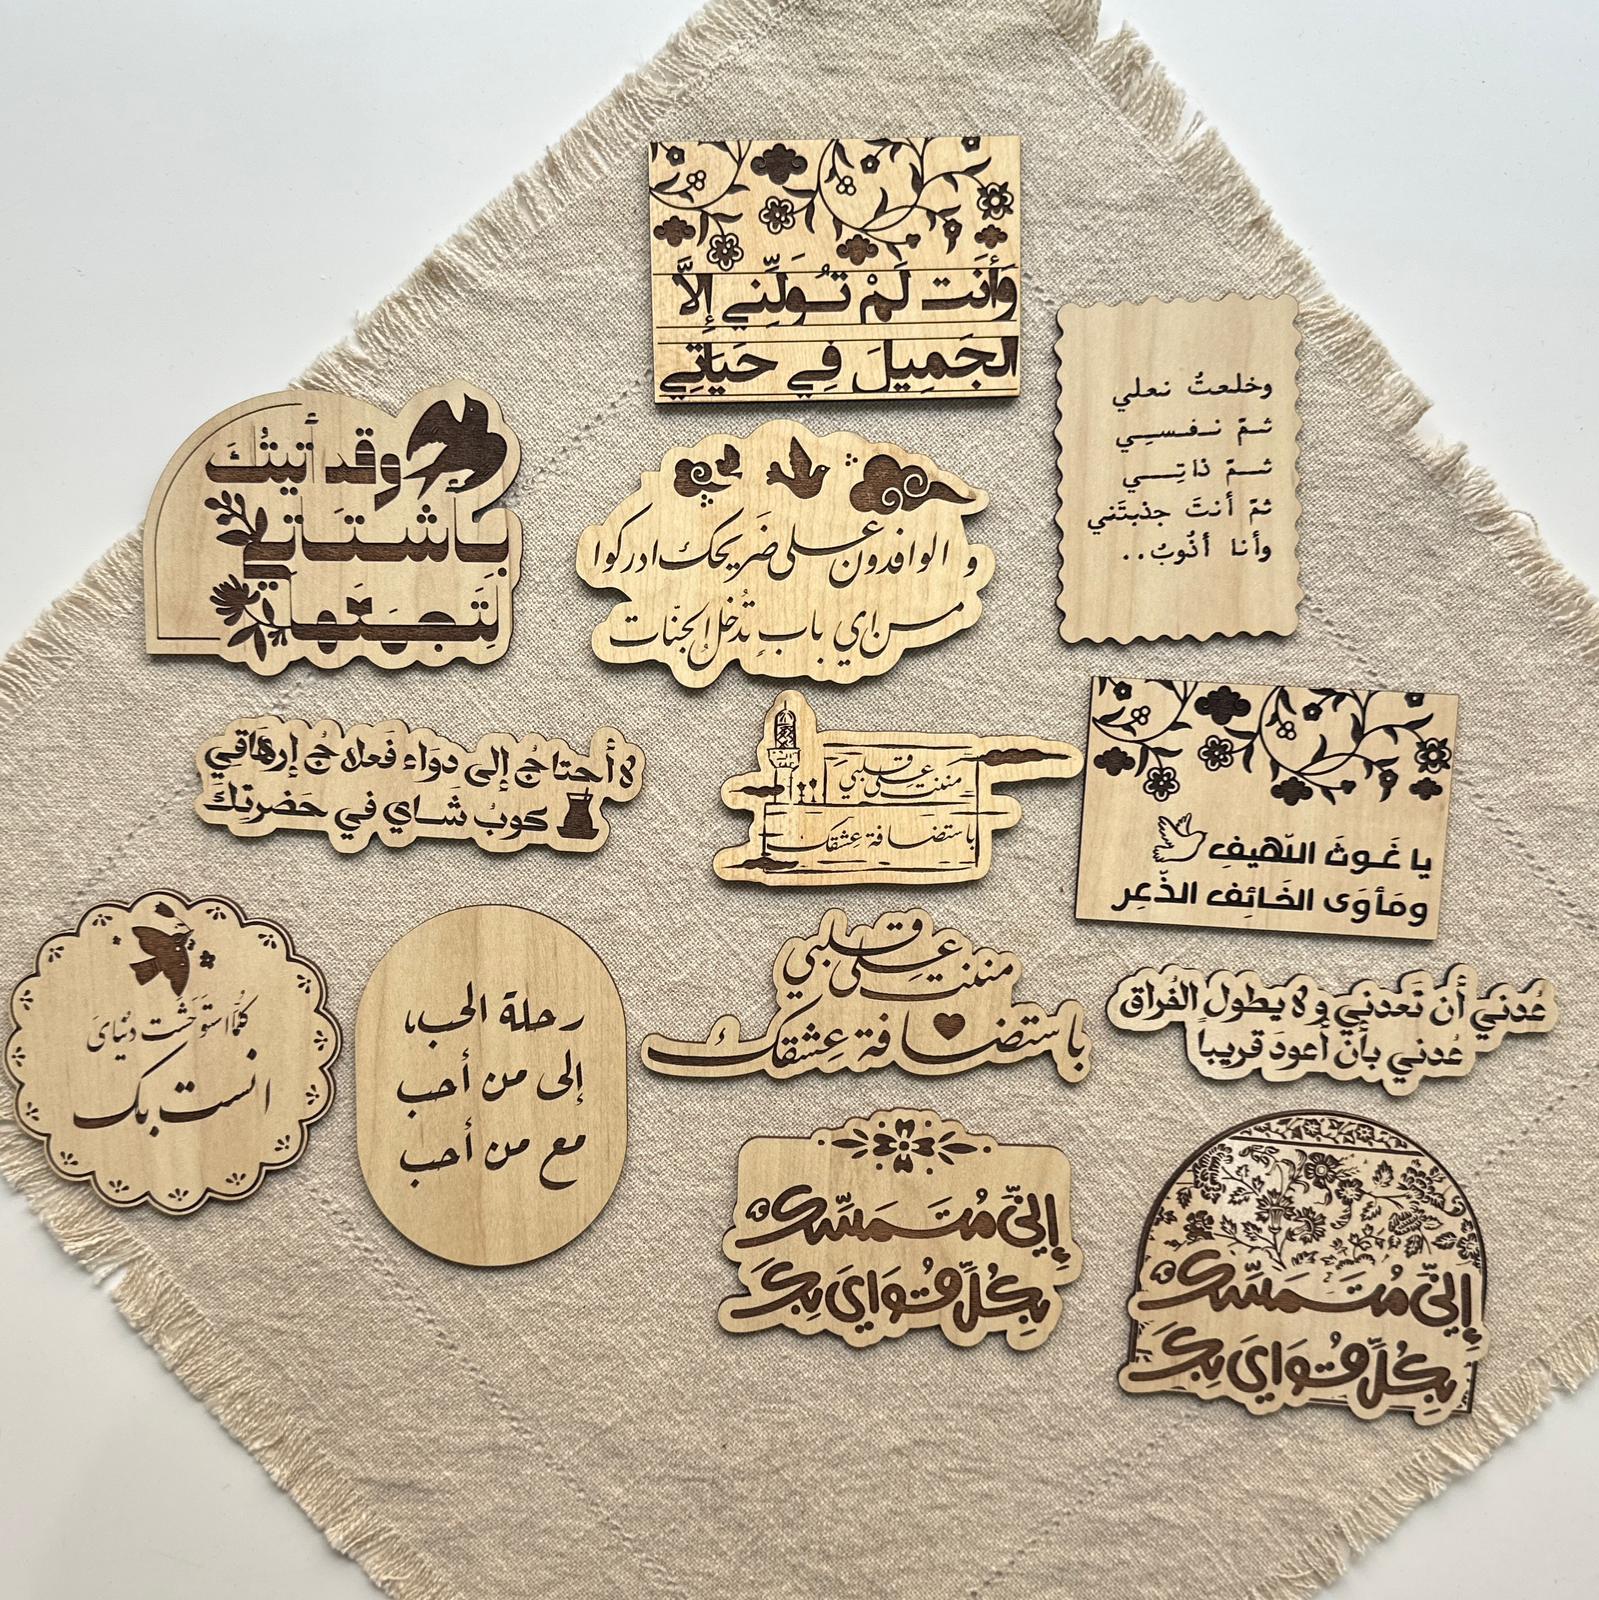 وَأَنت لَمْ تُولِّني إلَّا
الجَمِيلَ فِي حَيَاتِي
وخلعتُ نعلي
ثمّ نفسي
ثمّ ذاتي
ثمّ أنتَ جذبتَني
وأنا أذُوبُ..
وقد أتيتُكَ
بأشتاتي
لتجمعَها
و الوافدون على ضَريحك ادركوا
من اي باب تدُخل الجنّات
لا أحتاجُ إلى دوَاء فَعلاجُ إرهاقي
كوبُ شاي في حَضرتِكَ
مننت على قلبي
باستضافة عِشقك
يا غَوثَ اللّهيفِ
ومَأوَى الخَائِف الذّعِر
كلّما استوحَشت دنيَايَ
انست بك
رحلة الحب،
إلى من أحب
مع من أحب
مننت على قلبي
باستضافة عِشقك
عُدني أن تَعدني ولا يطول الفُراق
عُدني بأن أعودَ قريباً
إنّي مُتَمَسِّك
بِكُلِّ قُوَايَ بِكَ
إنّي مُتَمَسِّك
بِكُلِّ قُوَايَ بِكَ